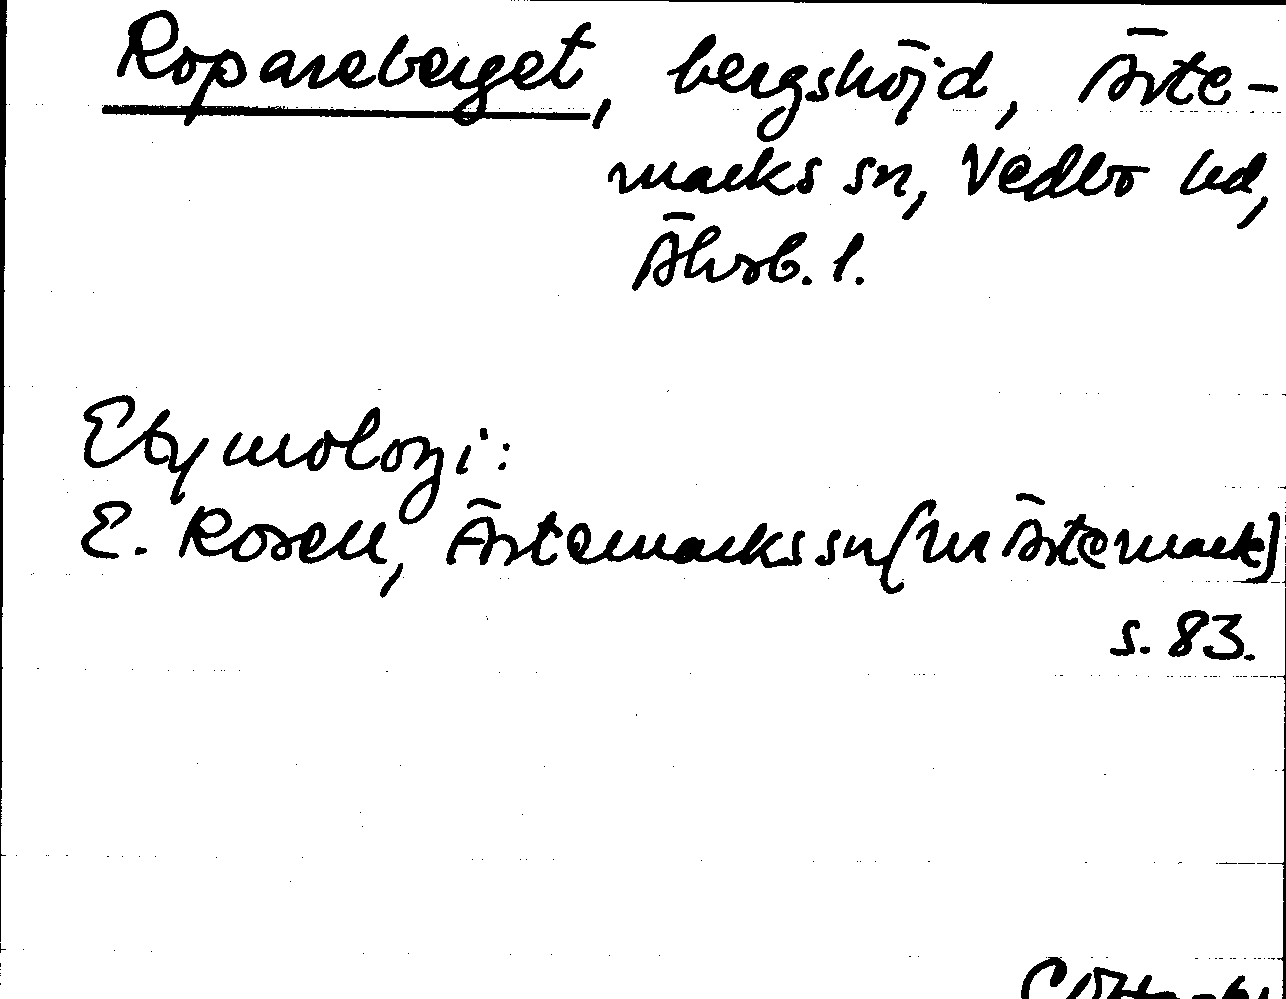 Ropareberget, bergshöjd, Ärte-
marks sn, Vedbo hd,
Älvsb. l.
Etymologi:
E. Rosell, Ärtemarks sn (in Ärtemark)
s. 83.